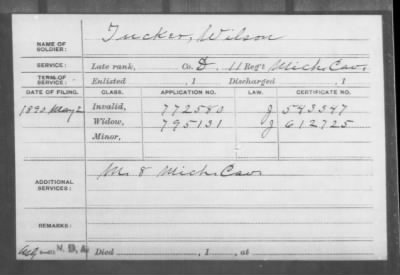 NAME OF SOLDIER: Tucker, Wilson
SERVICE: Late rank, Co. D. 11 Reg't Mich. Cav.
TERM OF SERVICE: Enlisted , 1 Discharged , 1
DATE OF FILING. CLASS. APPLICATION NO. LAW. CERTIFICATE NO.
1890 May 2 Invalid, 772580 J 543347
Widow, 795131 J 612725
Minor,
ADDITIONAL SERVICES: M. 8 Mich. Cav.
REMARKS:
Died , 1 , at